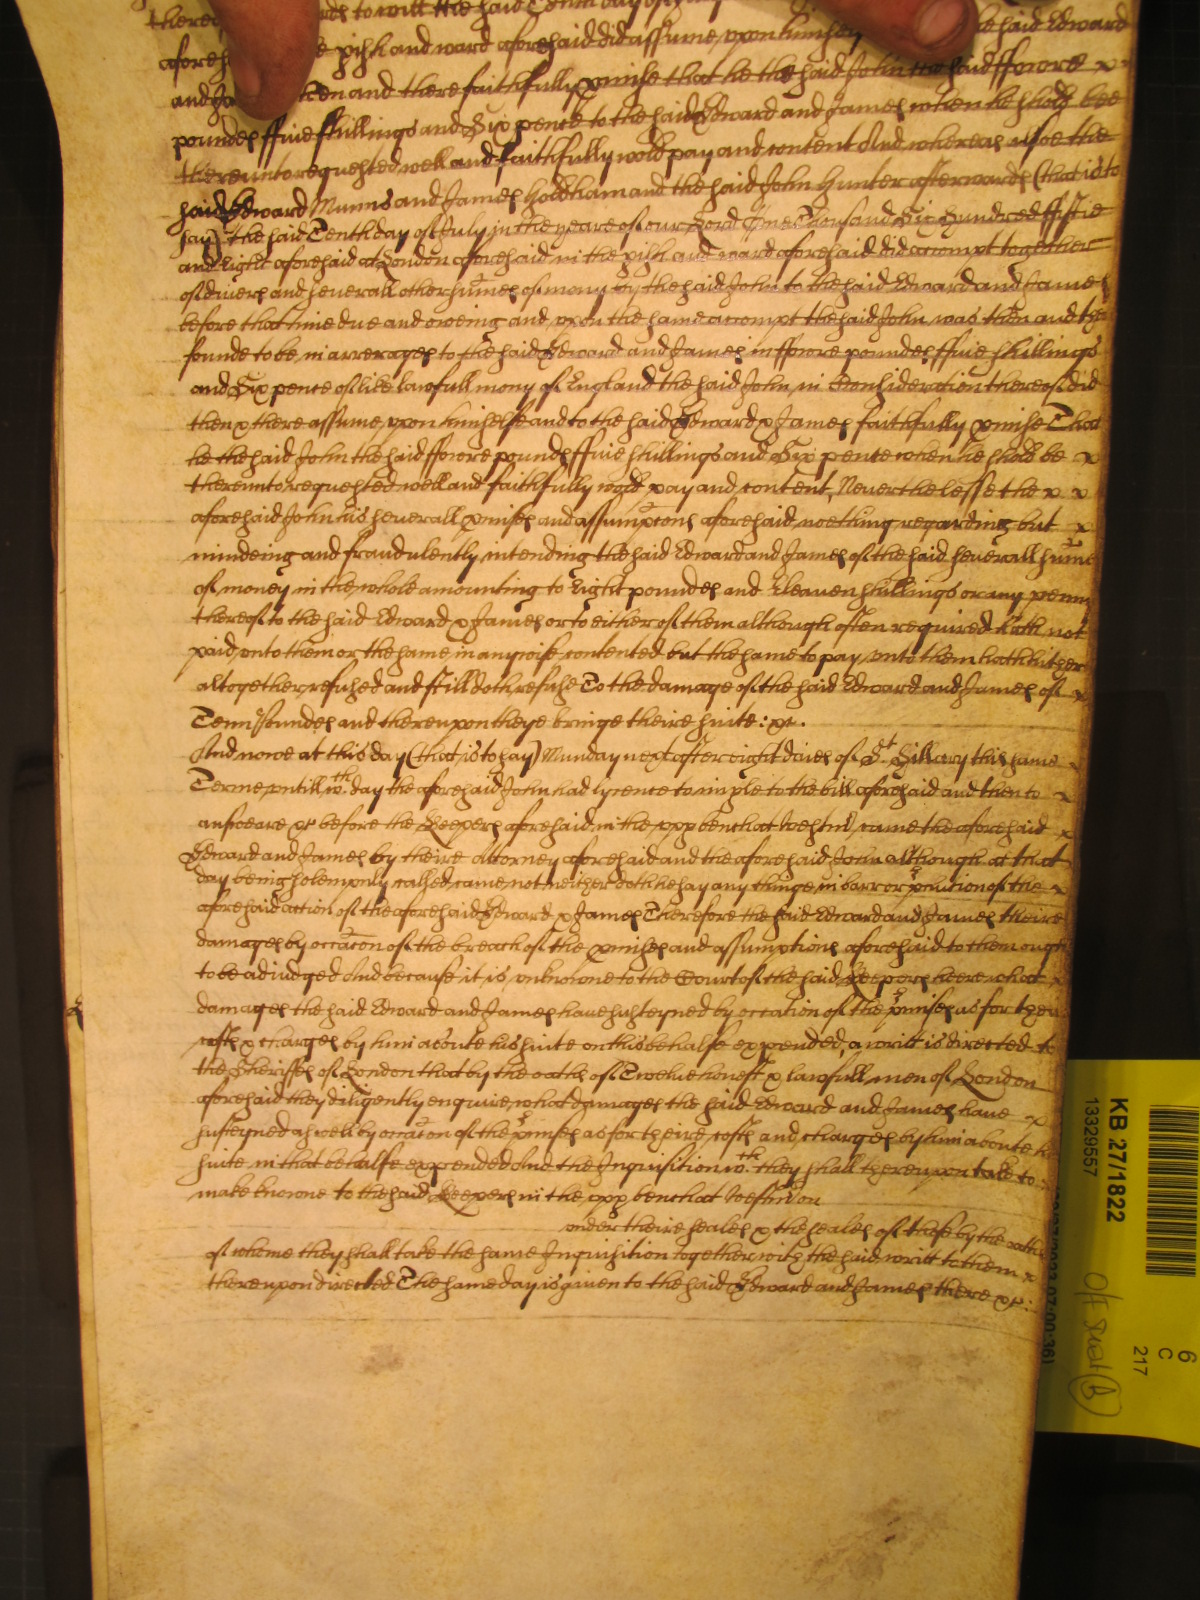 there to witt the said Tenth day of
afore pish and ward aforesaid did assume upon himself he said Edward
and Ja then and there faithfully pmise that he the said John the said ffowre
poundes ffiue shillings and Six pence to the said Edward and James when he shold bee
thereunto requested well and faithfully wold pay and content And whereas alsoe the
said Edward Munns and James Holdham and the said John Hunter afterwards (that is to
say) the said Tenth day of July in the yeare of our Lord One Thousand Six Hundred ffiftie
and Eight aforesaid at London aforesaid in the pish and ward aforesaid did accompt together
of divers and severall other sumes of mony by the said John to the said Edward and James
before that time due and oweing and upon the same accompt the said John was then and the
founde to be in arrerages to the said Edward and James in ffowre poundes ffiue shillings
and Six pence of like lawfull mony of England the said John in Consideration thereof did
then & there assume upon himselfe and to the said Edward & James faithfully pmise That
he the said John the said ffowre poundes ffiue shillings and Six pence when he shold be
thereunto requested well and faithfully wold pay and content, Neverthelesse the
aforesaid John his severall pmises and assumptons aforesaid noething regarding but
mindeing and fraudulently intending the said Edward and James of the said severall sume
of money in the whole amounting to Eight poundes and Eleaven shillings or any penny
thereof to the said Edward & James or to either of them although often required hath not
paid unto them or the same in any wise contented but the same to pay unto them hath hither
altogether refused and still doth refuse To the damage of the said Edward and James of
Tenn Poundes and thereupon theye bringe theire suite: &c.
And nowe at this day (that is to say) Munday next after eight daies of St Hillary this same
Terme untill wth. day the aforesaid John had lycence to imple to the bill aforesaid and then to
answeare &c before the Keepers aforesaid in the upp bench at Westm came the aforesaid
Edward and James by theire Attorney aforesaid and the aforesaid John although at that
day being solemnly called came not neither doth he say any thinge in barr or pclution of the
aforesaid action of the aforesaid Edward & James Therefore the said Edward and James theire
damages by occaton of the breach of the pmises and assumptions aforesaid to them ought
to be adiudged And because it is unknowne to the Court of the said Keepers heere what
damages the said Edward and James have susteyned by occation of the pmises as for their
costs & charges by him aboute his suite on this behalfe expended, a writt is directed to
the Sheriffes of London that by the oathes of Twelve honest & lawfull men of London
aforesaid they diligently enquire what damages the said Edward and James have
susteyned as well by occaton of the pmises as for theire costs and charges by him aboute h
suite in that behalfe expended And the Inquisition wth. they shall thereupon take to
make knowne to the said Keepers in the upp bench at Westm on
under theire seales & the seales of those by the oathes
of whome they shall take the same Inquisition together with the said writt to them
thereupon directed The same day is given to the said Edward and James there &c:
KB 27/1822
13329557
6
C
217